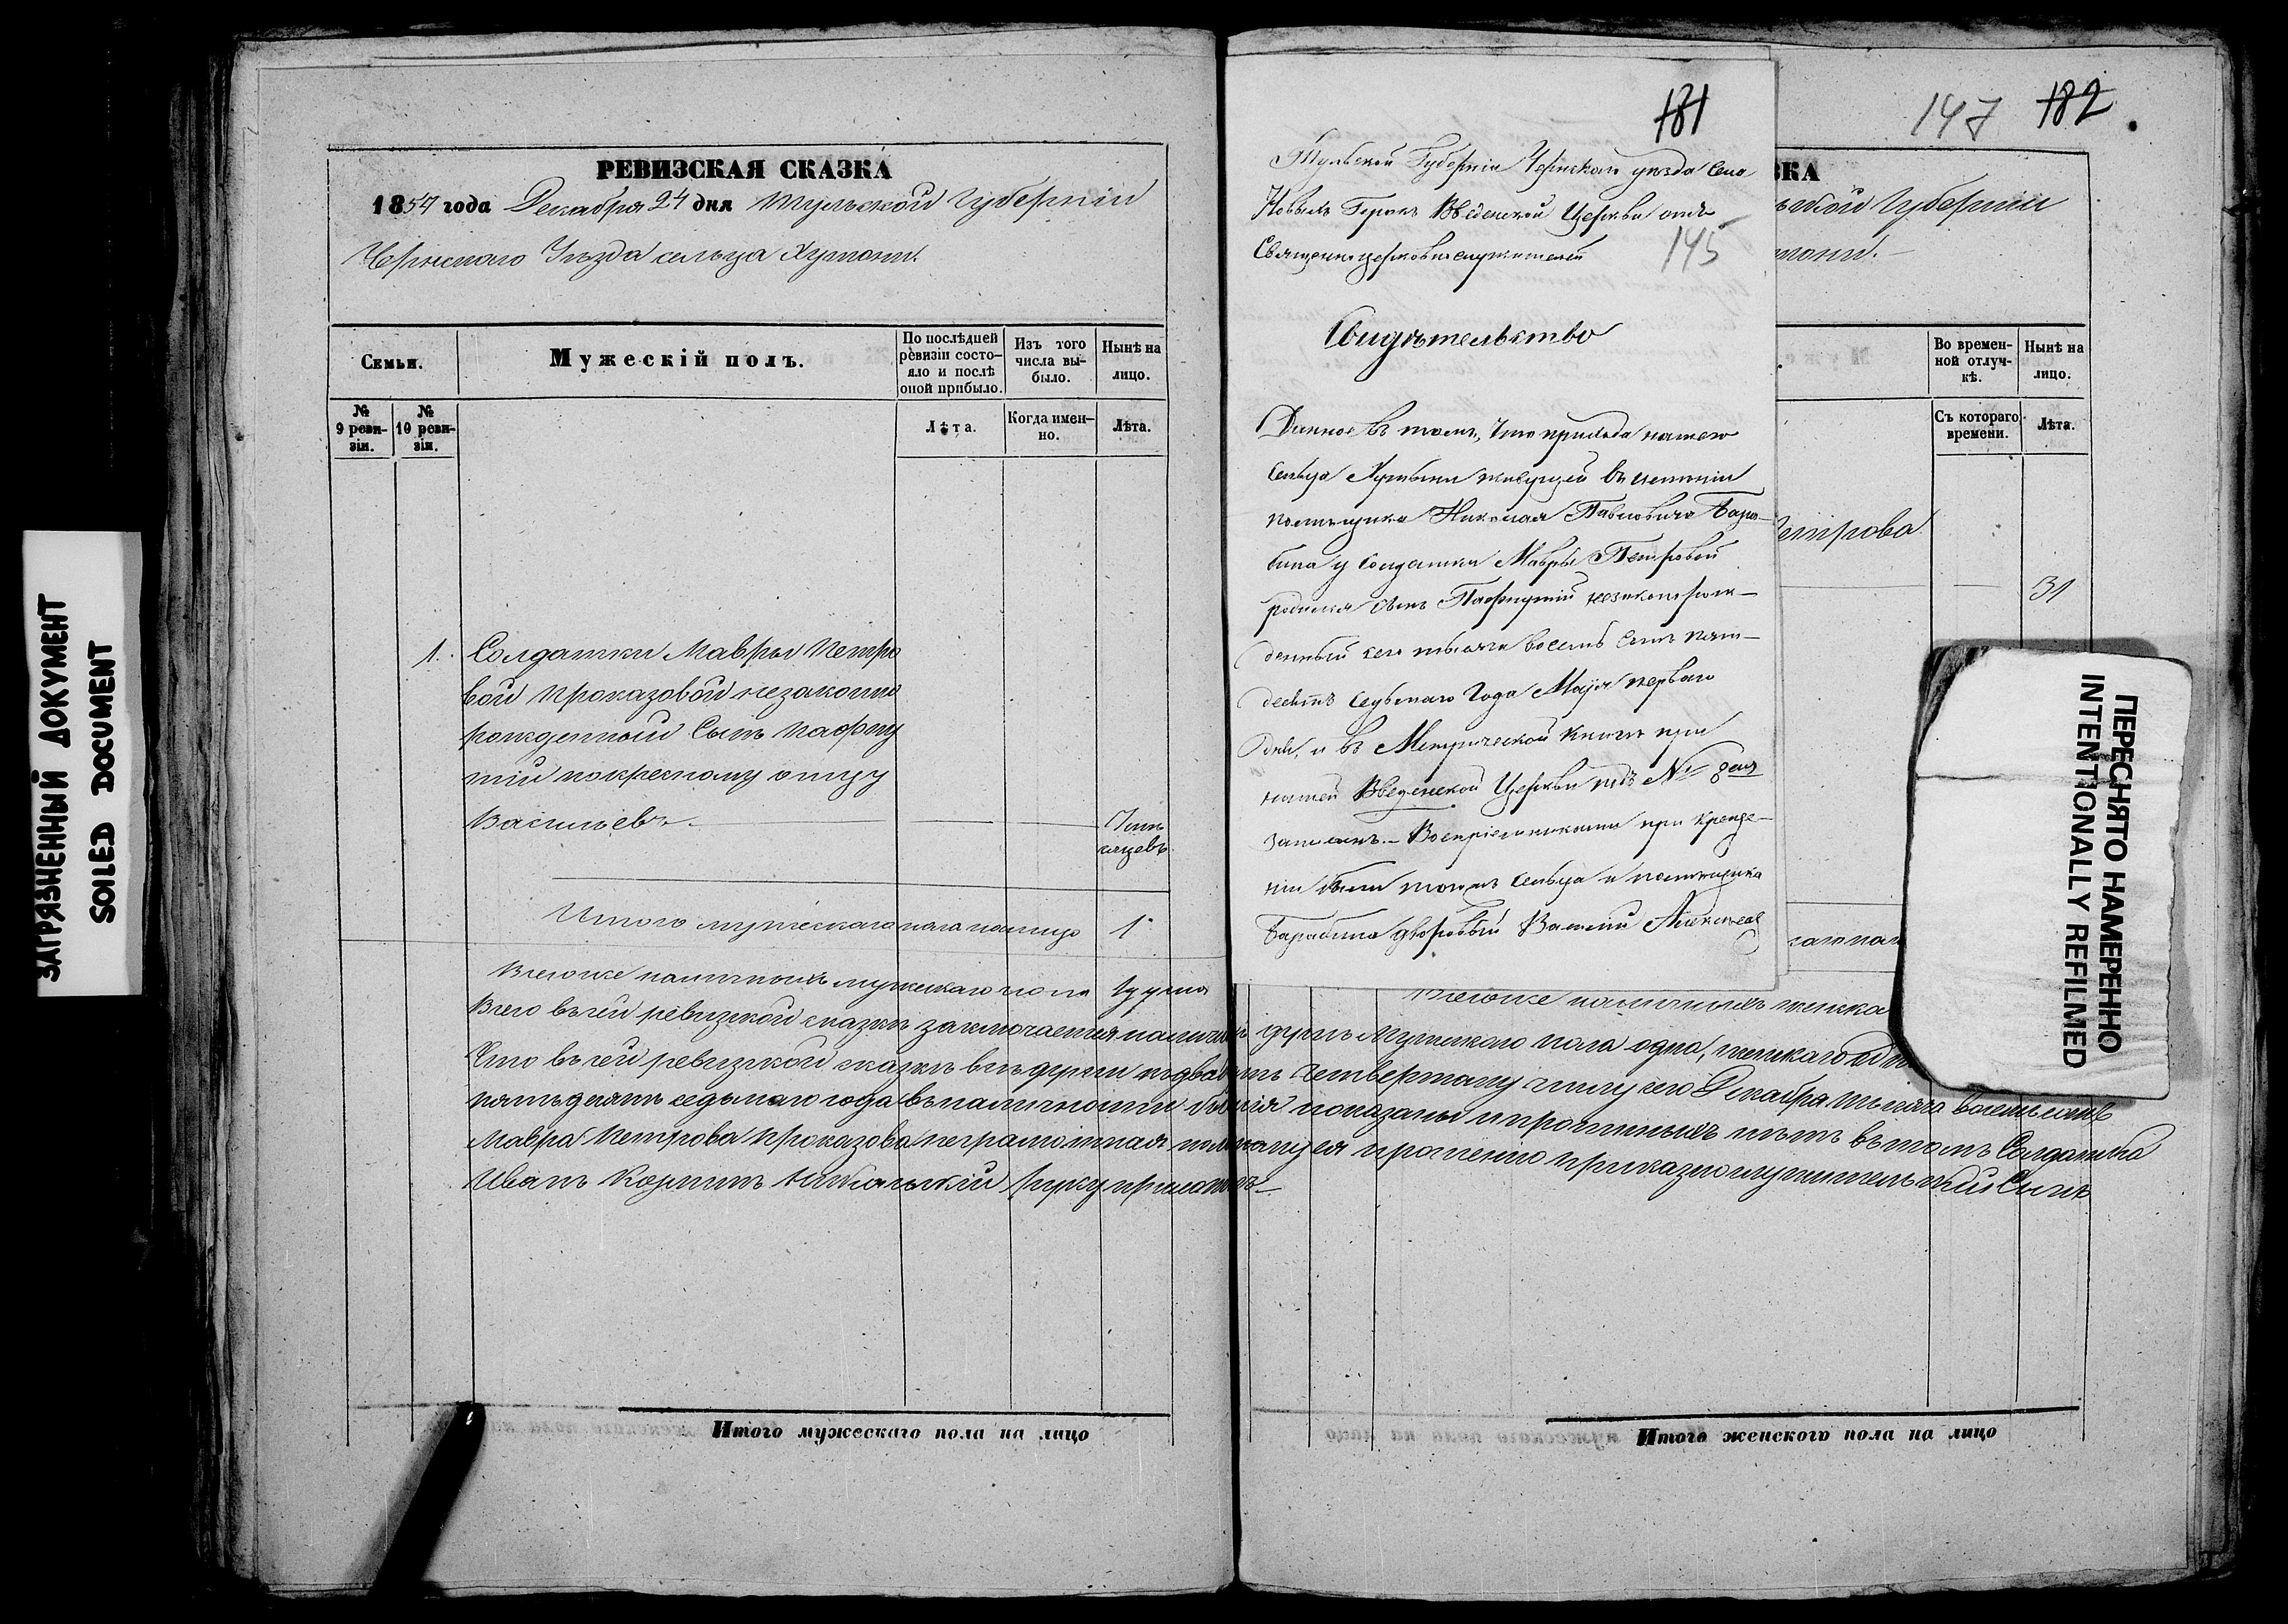 ЗАГРЯЗНЕННЫЙ ДОКУМЕНТ
SOILED DOCUMENT
РЕВИЗСКАЯ СКАЗКА
1857 года Декабря 24 дня Тульской Губерніи
Чернскаго Уѣзда сельца
Семьи.
Мужескій полъ.
По послѣдней ревизіи состояло и послѣ оной прибыло.
Изъ того числа выбыло.
Нынѣ на лицо.
№ 9 ревизіи.
№ 10 ревизіи.
Лѣта.
Когда именно.
Лѣта.
1. Солдатки Мавры Петро
вой Проказовой незаконно
рожденный Сынъ Пафну
тій по крестному отцу
Васильевъ.
Итого мужескаго пола налицо 1
Всего же наличныхъ мужескаго пола 1 душа
Всего въ сей ревизской сказкѣ заключается наличныхъ душъ Мужескаго пола одна, женскаго
Что въ сей ревизской сказкѣ всѣ души къ двадцать четвертому числу сего Декабря тысяча восемьсотъ
пятьдесятъ седьмаго года въ наличности показаны и прописныхъ нѣтъ въ томъ Солдатка
Мавра Петрова Проказова неграмотная а по прошенію приказнослужительскій Сынъ
Иванъ Никольскій руку приложилъ
Итого мужескаго пола на лицо
181
145
Тульской Губерніи Чернскаго уѣзда Села
Новыхъ Введенской Церкви отъ
Священноцерковнослужителей
Свидѣтельство
Данное въ томъ, что прихода нашего
сельца живущей въ имѣніи
помѣщика Николая Павловича Бара-
бина у солдатки Мавры Петровой
родился сынъ Пафнутій незаконорож-
денный сего тысяча восемь сотъ пять-
десятъ седьмаго Года Маія перваго
дня, и въ Метрической книгѣ при
нашей Введенской Церкви подъ №
записанъ. Воспріемниками при Креще-
ніи были того жъ сельца и помѣщика
Барабина дворовый Василій Алексѣев
147 182
ЗКА
ской Губерніи
Во временной отлучкѣ.
Нынѣ на лицо.
Съ котораго времени.
Лѣта.
етрова
31
Всего же наличныхъ женска
ПЕРЕСНЯТО НАМЕРЕННО
INTENTIONALLY REFILMED
Итого женскаго пола на лицо